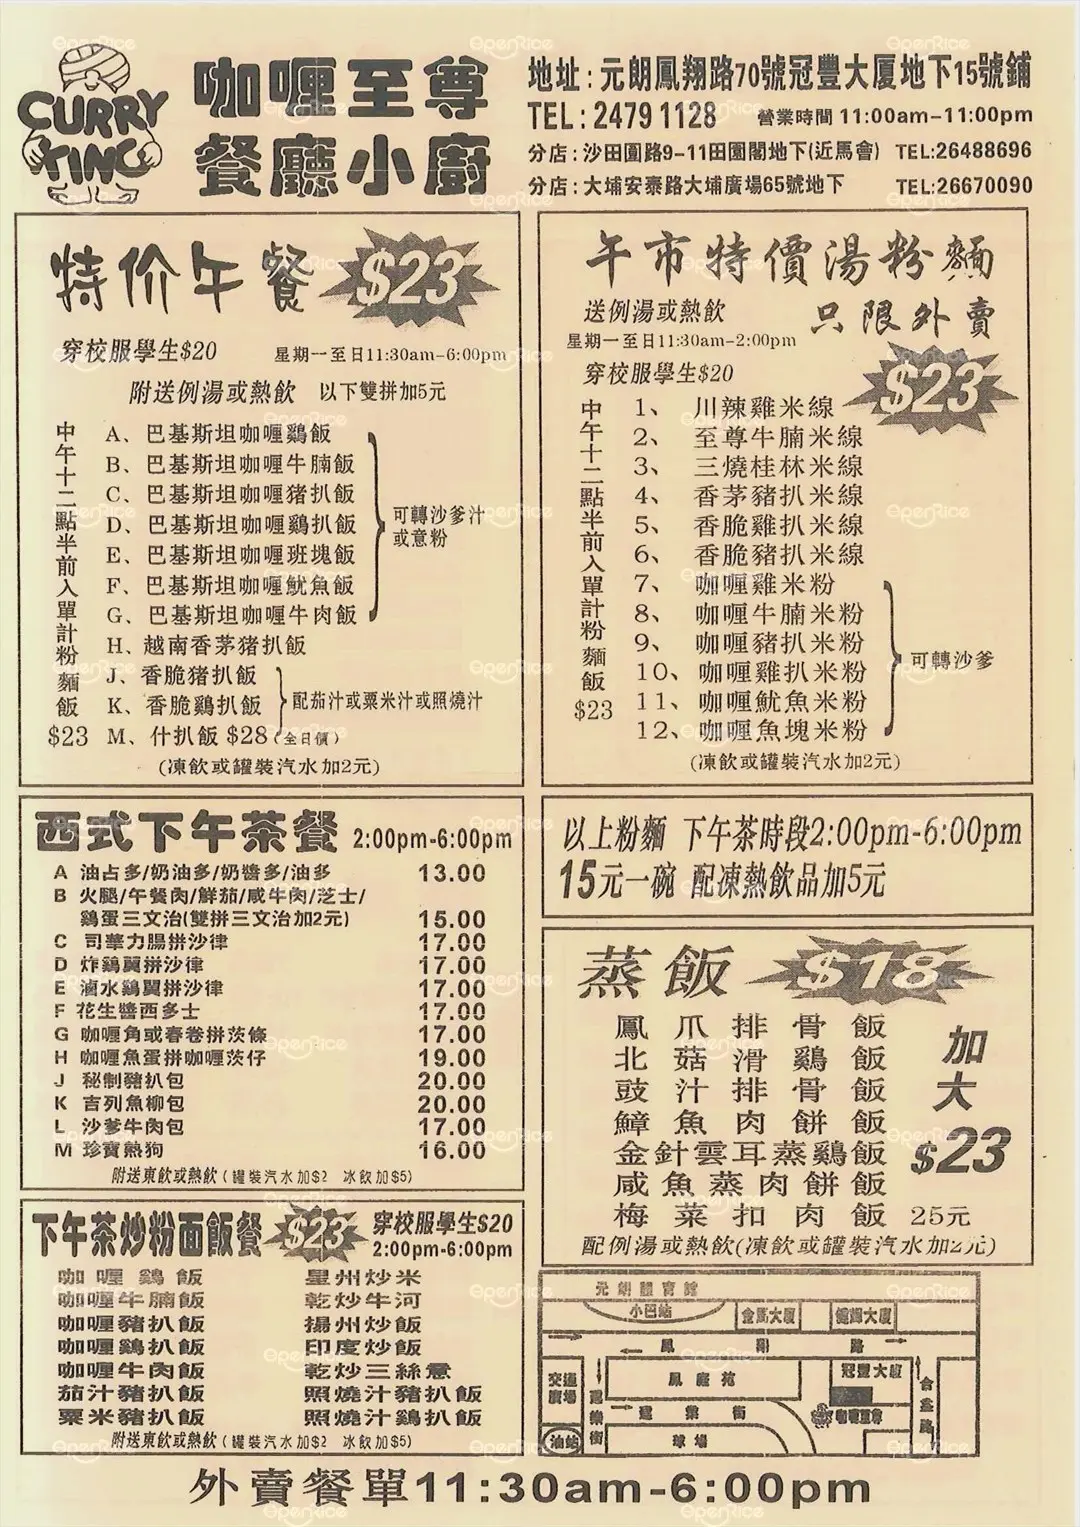 CURRY KING
咖喱至尊
餐廳小廚
地址：元朗鳳翔路70號冠豐大厦地下15號鋪
TEL：2479 1128 營業時間 11:00am-11:00pm
分店：沙田圍路9-11田園閣地下(近馬會) TEL:26488696
分店：大埔安泰路大埔廣場65號地下 TEL:26670090
特价午餐 $23
穿校服學生$20 星期一至日11:30am-6:00pm
附送例湯或熱飲 以下雙拼加5元
中午十二點半前入單計粉麵飯 $23
A、巴基斯坦咖喱鷄飯
B、巴基斯坦咖喱牛腩飯
C、巴基斯坦咖喱猪扒飯
D、巴基斯坦咖喱鷄扒飯
E、巴基斯坦咖喱班塊飯
F、巴基斯坦咖喱魷魚飯
G、巴基斯坦咖喱牛肉飯
可轉沙爹汁
或意粉
H、越南香茅猪扒飯
J、香脆猪扒飯
K、香脆鷄扒飯
配茄汁或粟米汁或照燒汁
M、什扒飯 $28(全日價)
(凍飲或罐裝汽水加2元)
午市特價湯粉麵
送例湯或熱飲 只限外賣
星期一至日11:30am-2:00pm
穿校服學生$20 $23
中午十二點半前入單計粉麵飯 $23
1、川辣雞米線
2、至尊牛腩米線
3、三燒桂林米線
4、香茅豬扒米線
5、香脆雞扒米線
6、香脆豬扒米線
7、咖喱雞米粉
8、咖喱牛腩米粉
9、咖喱豬扒米粉
10、咖喱雞扒米粉
11、咖喱魷魚米粉
12、咖喱魚塊米粉
可轉沙爹
(凍飲或罐裝汽水加2元)
西式下午茶餐 2:00pm-6:00pm
A 油占多/奶油多/奶醬多/油多 13.00
B 火腿/午餐肉/鮮茄/咸牛肉/芝士/
鷄蛋三文治(雙拼三文治加2元) 15.00
C 司華力腸拼沙律 17.00
D 炸鷄翼拼沙律 17.00
E 滷水鷄翼拼沙律 17.00
F 花生醬西多士 17.00
G 咖喱角或春卷拼茨條 17.00
H 咖喱魚蛋拼咖喱茨仔 19.00
J 秘制豬扒包 20.00
K 吉列魚柳包 20.00
L 沙爹牛肉包 17.00
M 珍寶熱狗 16.00
附送東飲或熱飲(罐裝汽水加$2 冰飲加$5)
以上粉麵 下午茶時段2:00pm-6:00pm
15元一碗 配凍熱飲品加5元
蒸飯 $18
鳳爪排骨飯
北菇滑鷄飯
豉汁排骨飯
鱆魚肉餅飯
金針雲耳蒸鷄飯
咸魚蒸肉餅飯
梅菜扣肉飯 25元
加大$23
配例湯或熱飲(凍飲或罐裝汽水加2元)
下午茶炒粉面飯餐 $23 穿校服學生$20
2:00pm-6:00pm
咖喱鷄飯 星州炒米
咖喱牛腩飯 乾炒牛河
咖喱豬扒飯 揚州炒飯
咖喱鷄扒飯 印度炒飯
咖喱牛肉飯 乾炒三絲意
茄汁豬扒飯 照燒汁豬扒飯
粟米豬扒飯 照燒汁鷄扒飯
附送東飲或熱飲(罐裝汽水加$2 冰飲加$5)
元朗體育館
小巴站 金馬大厦
鳳翔路
交通廣場 鳳庭苑 冠豐大廈
建樂街 咖喱至尊
油站 球場
外賣餐單11:30am-6:00pm
OpenRice